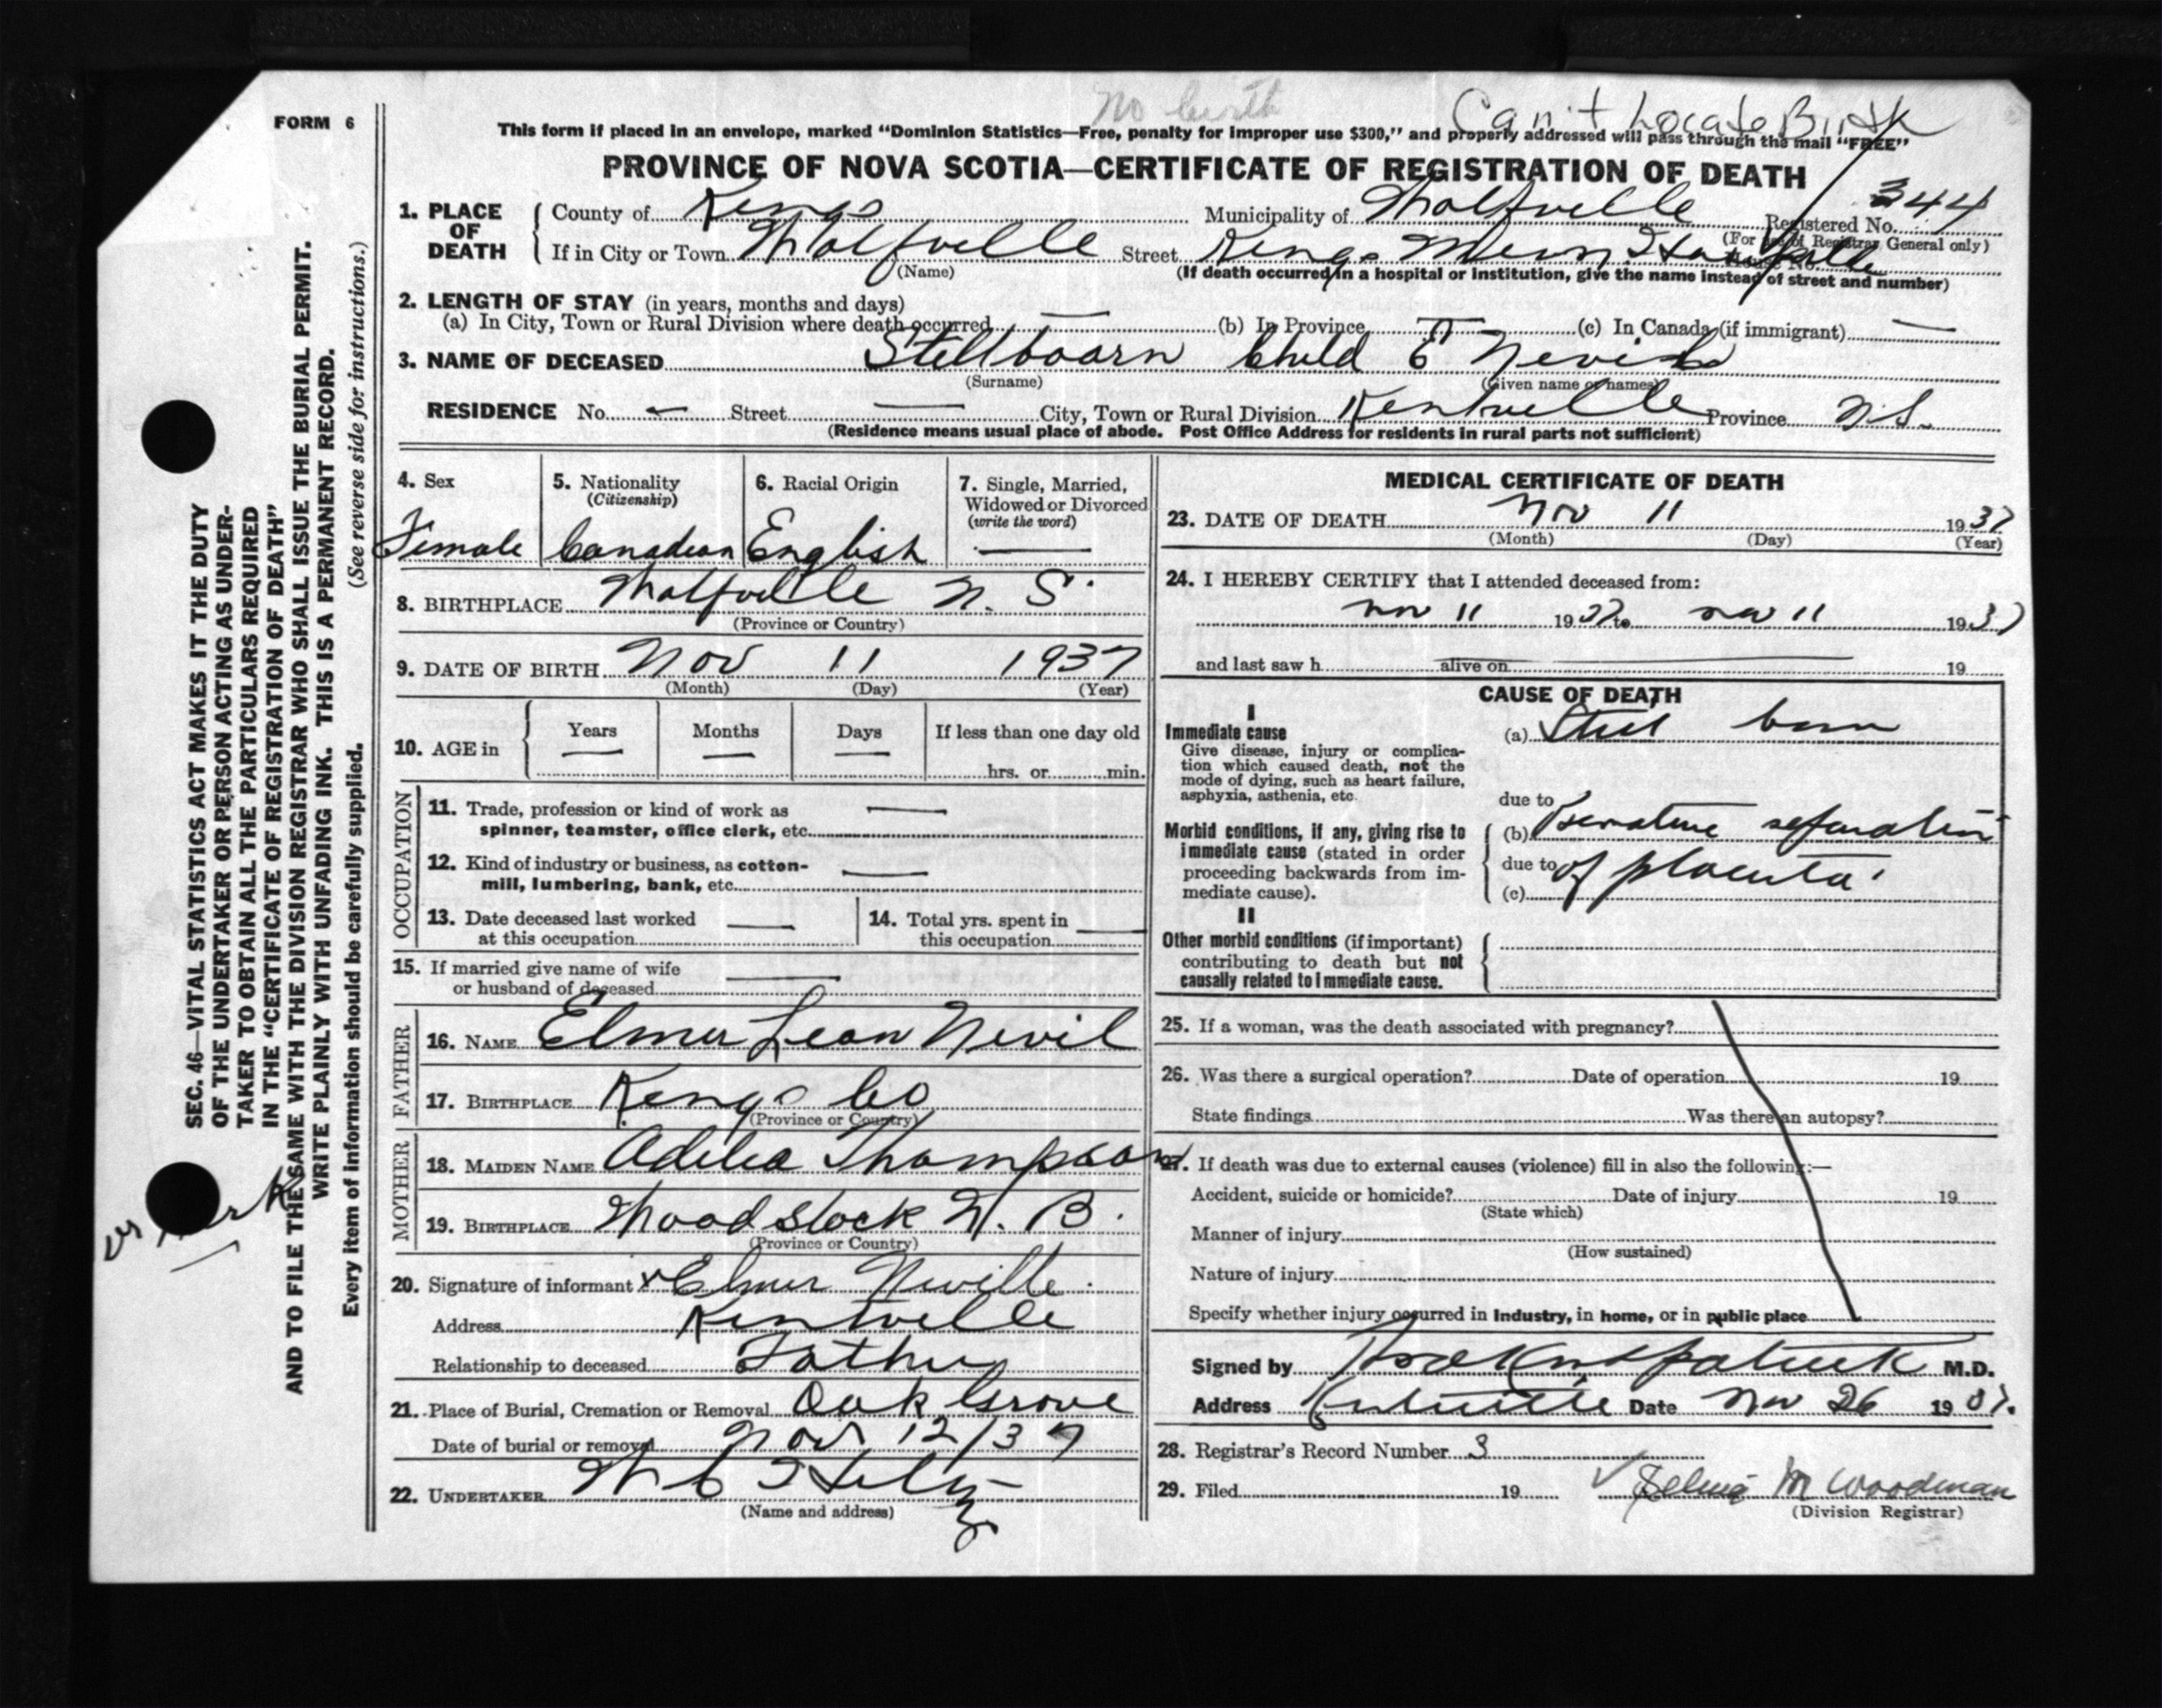 No birth
Can't Locate Birth
FORM 6
This form if placed in an envelope, marked “Dominion Statistics—Free, penalty for improper use $300,” and properly addressed will pass through the mail “FREE”
PROVINCE OF NOVA SCOTIA—CERTIFICATE OF REGISTRATION OF DEATH
1. PLACE OF DEATH
County of Kings Municipality of Wolfville Registered No. 344
(For use of Registrar General only)
If in City or Town Wolfville Street Kings Mem. House No.
(Name) (If death occurred in a hospital or institution, give the name instead of street and number)
2. LENGTH OF STAY (in years, months and days)
(a) In City, Town or Rural Division where death occurred — (b) In Province (c) In Canada (if immigrant) —
3. NAME OF DECEASED Stillboarn Child E
(Surname) (Given name or names)
RESIDENCE No. — Street — City, Town or Rural Division Kentville Province N.S.
(Residence means usual place of abode. Post Office Address for residents in rural parts not sufficient)
4. Sex
Female
5. Nationality
(Citizenship)
Canadian
6. Racial Origin
English
7. Single, Married,
Widowed or Divorced
(write the word)
—
8. BIRTHPLACE Wolfville N. S.
(Province or Country)
9. DATE OF BIRTH Nov 11 1937
(Month) (Day) (Year)
10. AGE in
Years Months Days If less than one day old
— — —
hrs. or min.
OCCUPATION
11. Trade, profession or kind of work as —
spinner, teamster, office clerk, etc.
12. Kind of industry or business, as cotton- —
mill, lumbering, bank, etc.
13. Date deceased last worked —
at this occupation
14. Total yrs. spent in —
this occupation
15. If married give name of wife —
or husband of deceased
FATHER
16. NAME Elmer Leon Nevil
17. BIRTHPLACE Kings Co
(Province or Country)
MOTHER
18. MAIDEN NAME Adelia Thompson
19. BIRTHPLACE Woodstock N. B.
(Province or Country)
20. Signature of informant x Elmer Neville
Address Kentville
Relationship to deceased Father
21. Place of Burial, Cremation or Removal Oak Grove
Date of burial or removal Nov 12/37
22. UNDERTAKER W C
(Name and address)
MEDICAL CERTIFICATE OF DEATH
23. DATE OF DEATH Nov 11 1937
(Month) (Day) (Year)
24. I HEREBY CERTIFY that I attended deceased from:
Nov 11 1937 to Nov 11 1937
and last saw h alive on 19
CAUSE OF DEATH
I
Immediate cause
Give disease, injury or complica-
tion which caused death, not the
mode of dying, such as heart failure,
asphyxia, asthenia, etc.
(a) Still born
due to
Morbid conditions, if any, giving rise to
immediate cause (stated in order
proceeding backwards from im-
mediate cause).
(b) separation
due to of placenta
(c)
II
Other morbid conditions (if important)
contributing to death but not
causally related to immediate cause.
25. If a woman, was the death associated with pregnancy?
26. Was there a surgical operation? Date of operation 19
State findings Was there an autopsy?
27. If death was due to external causes (violence) fill in also the following:—
Accident, suicide or homicide? Date of injury 19
(State which)
Manner of injury
(How sustained)
Nature of injury
Specify whether injury occurred in Industry, in home, or in public place
Signed by Kirkpatrick M.D.
Address Kentville Date Nov 26 1937.
28. Registrar's Record Number 3
29. Filed 19 M Woodman
(Division Registrar)
SEC. 46—VITAL STATISTICS ACT MAKES IT THE DUTY
OF THE UNDERTAKER OR PERSON ACTING AS UNDER-
TAKER TO OBTAIN ALL THE PARTICULARS REQUIRED
IN THE “CERTIFICATE OF REGISTRATION OF DEATH”
AND TO FILE THE SAME WITH THE DIVISION REGISTRAR WHO SHALL ISSUE THE BURIAL PERMIT.
WRITE PLAINLY WITH UNFADING INK. THIS IS A PERMANENT RECORD.
Every item of information should be carefully supplied. (See reverse side for instructions.)